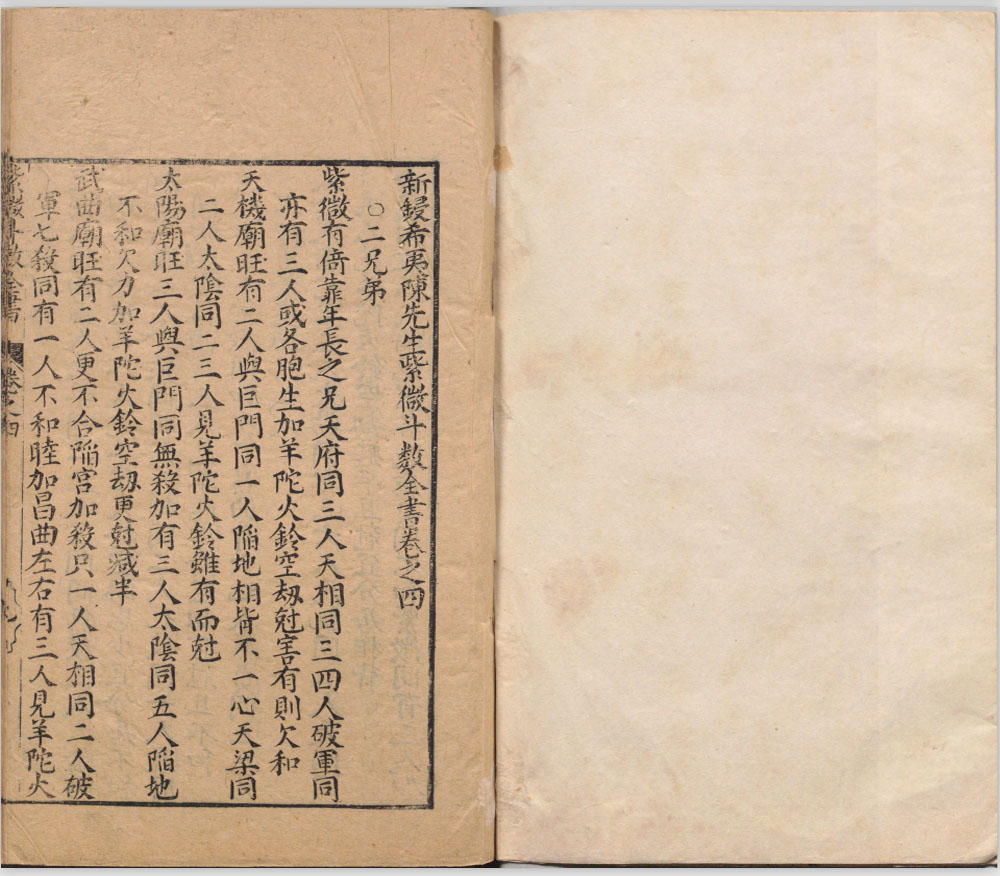 新鋟希夷陳先生紫微斗數全書卷之四
○二兄弟
紫微有倚靠年長之兄天府同三人天相同三四人破軍同
亦有三人或各胞生加羊陀火鈴空刼尅害有則欠和
天機廟旺有二人與巨門同一人陥地相背不一心天梁同
二人太陰同二三人見羊陀火鈴雖有而尅
太陽廟旺三人與巨門同無殺加有三人太陰同五人陥地
不和欠力加羊陀火鈴空刼更尅减半
武曲廟旺有二人更不合陥宫加殺只一人天相同二人破
軍七殺同有一人不和睦加昌曲左右有三人見羊陀火
紫微斗數全書 卷之四